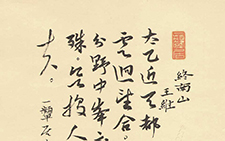 終南山
王維
太乙近天都
雲迴望合。
分野中峯
殊。欲投人